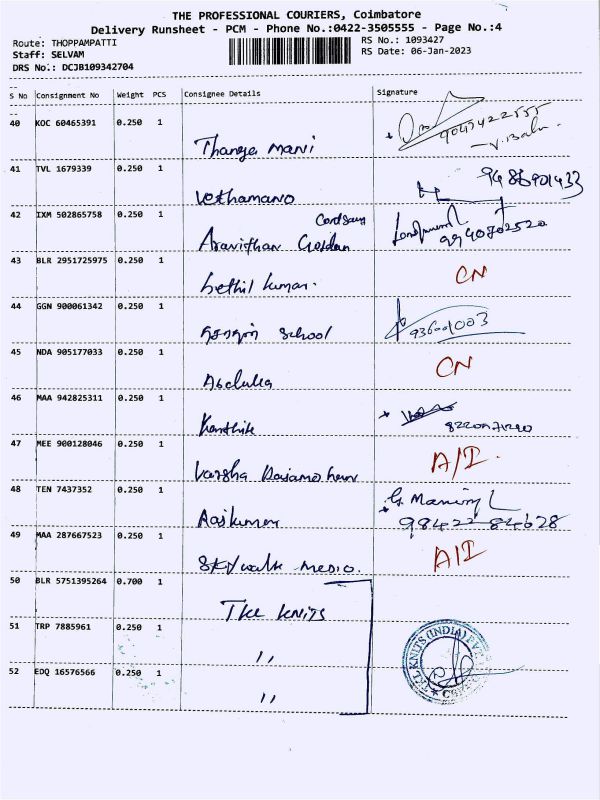 THE PROFESSIONAL COURIERS, Coimbatore
Delivery Runsheet - PCM - Phone No.:0422-3505555 - Page No.:4
Route: THOPPAMPATTI
RS No.: 1093427
Staff: SELVAM
RS Date: 06-Jan-2023
DRS No.: DCJB109342704
S No Consignment No Weight PCS Consignee Details Signature
40 KOC 60465391 0.250 1 Thanga Mani 9045422555
41 TVL 1679339 0.250 1 Vethamano 9486901433
42 IXM 502865758 0.250 1 Aravinthan 9940702520
43 BLR 2951725975 0.250 1 Sethil Kumar. CN
44 GGN 900061342 0.250 1 School 936001003
45 NDA 905177033 0.250 1 CN
46 MAA 942825311 0.250 1 Karthik
47 MEE 900128046 0.250 1 Varsha A/I.
48 TEN 7437352 0.250 1 Rajkumar 98422 84628
49 MAA 287667523 0.250 1 Skywalk Medio. A/I
50 BLR 5751395264 0.700 1 TKL KNITS
51 TRP 7885961 0.250 1 ,,
52 EDQ 16576566 0.250 1 ,,
T.K.L KNITS (INDIA) PVT